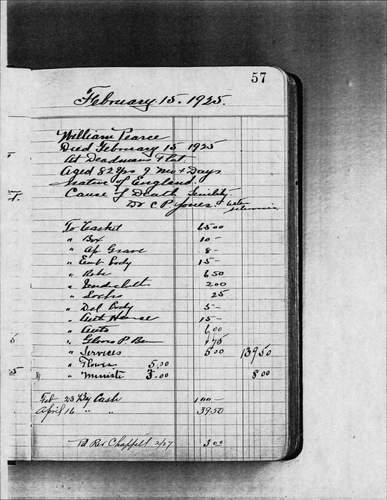 57
February 15. 1925.
William Pearce
Died February 15 1925
At Deadmans Flat.
Aged 82 Yrs 9 Mo + Days
Native of England
Cause of Death Senility
Dr C P Jones.
To Casket 65 00
" Box 10 -
" Op Grave 8 -
" Emb body 15 -
" Robe 6 50
" 2 00
" Socks 25
" Del body 5 -
" Auto Hearse 15 -
" Auto 6 00
" Gloves P Bear 1 75
" Services 5 00 139 50
" Flowers 5.00
" Minister 3.00 8 00
Feb 23 By Cash 100 -
April 16 " " 39 50
Pd Rev Chappell 2/27 3 00